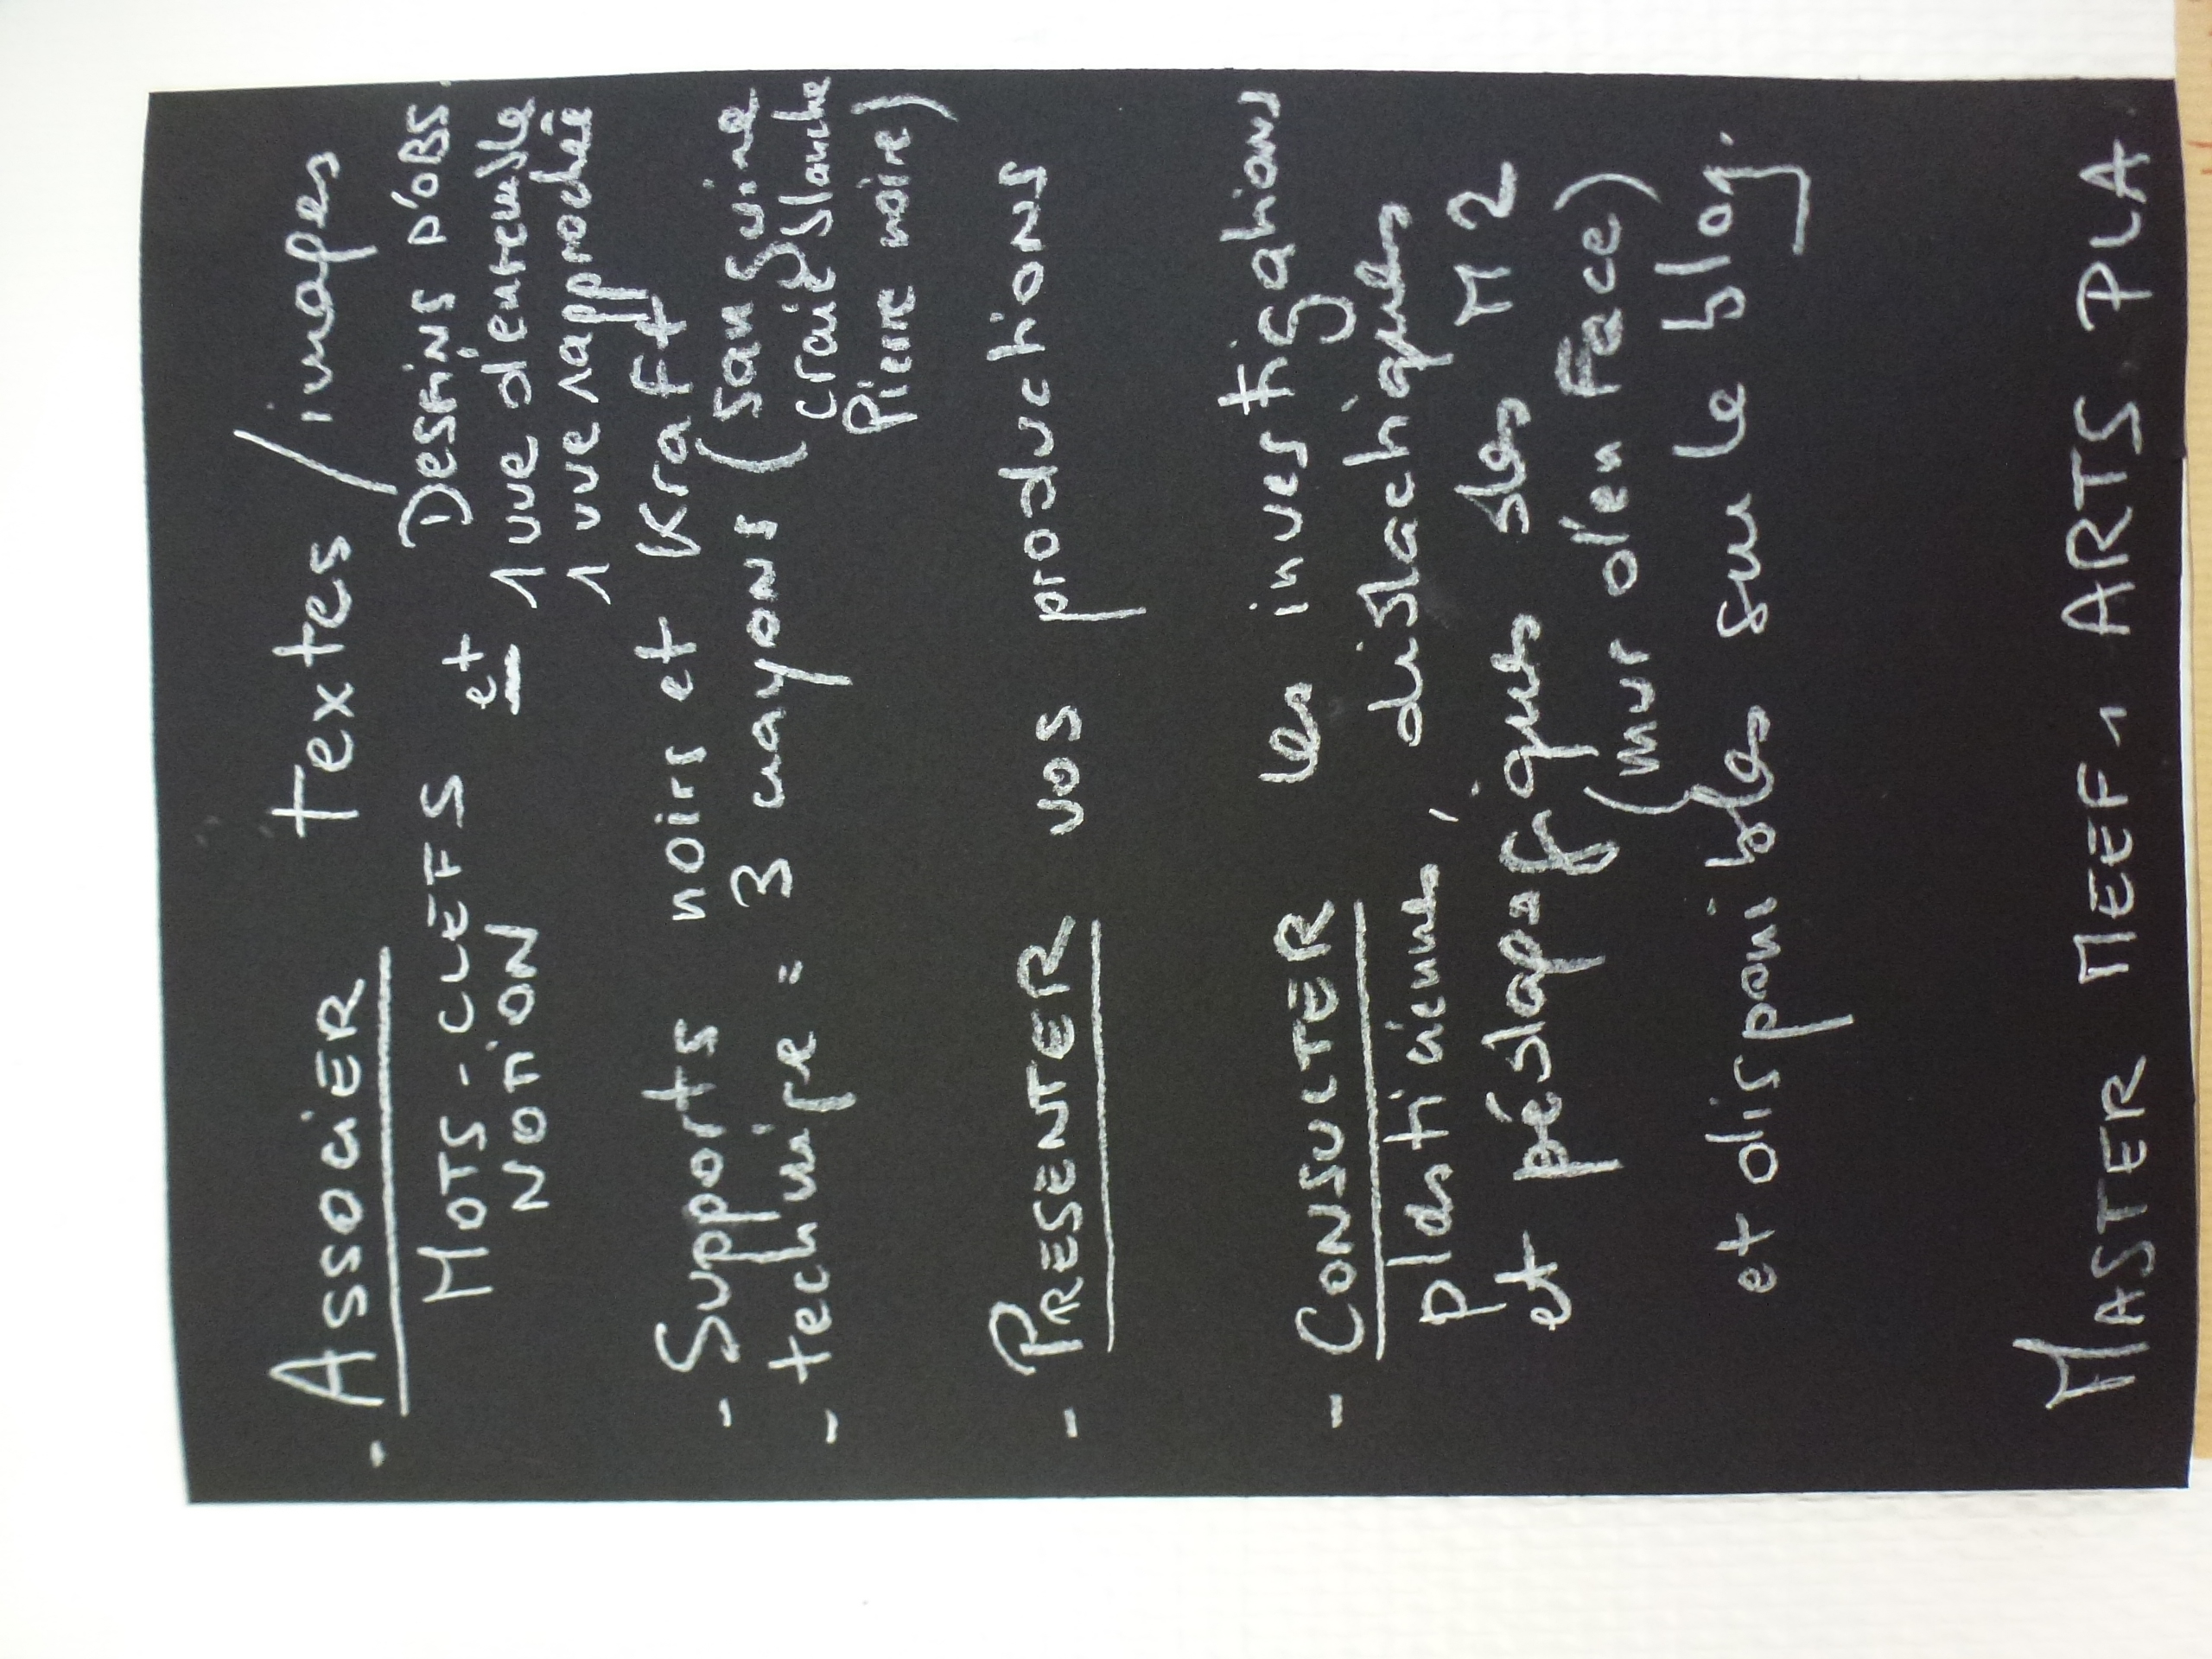 - ASSOCIER textes / images
MOTS-CLEFS et DESSINS D'OBS.
NOTION 1 vue d'ensemble
1 vue rapprochée
- Supports noirs et Kraft
- technique = 3 crayons (sanguine
craie blanche
Pierre noire)
- PRESENTER vos productions
- CONSULTER les investigations
plasticiennes, didactiques
et pédagogiques des M2
(mur d'en Face)
et disponibles sur le blog.
MASTER MEEF 1 ARTS. PLA.